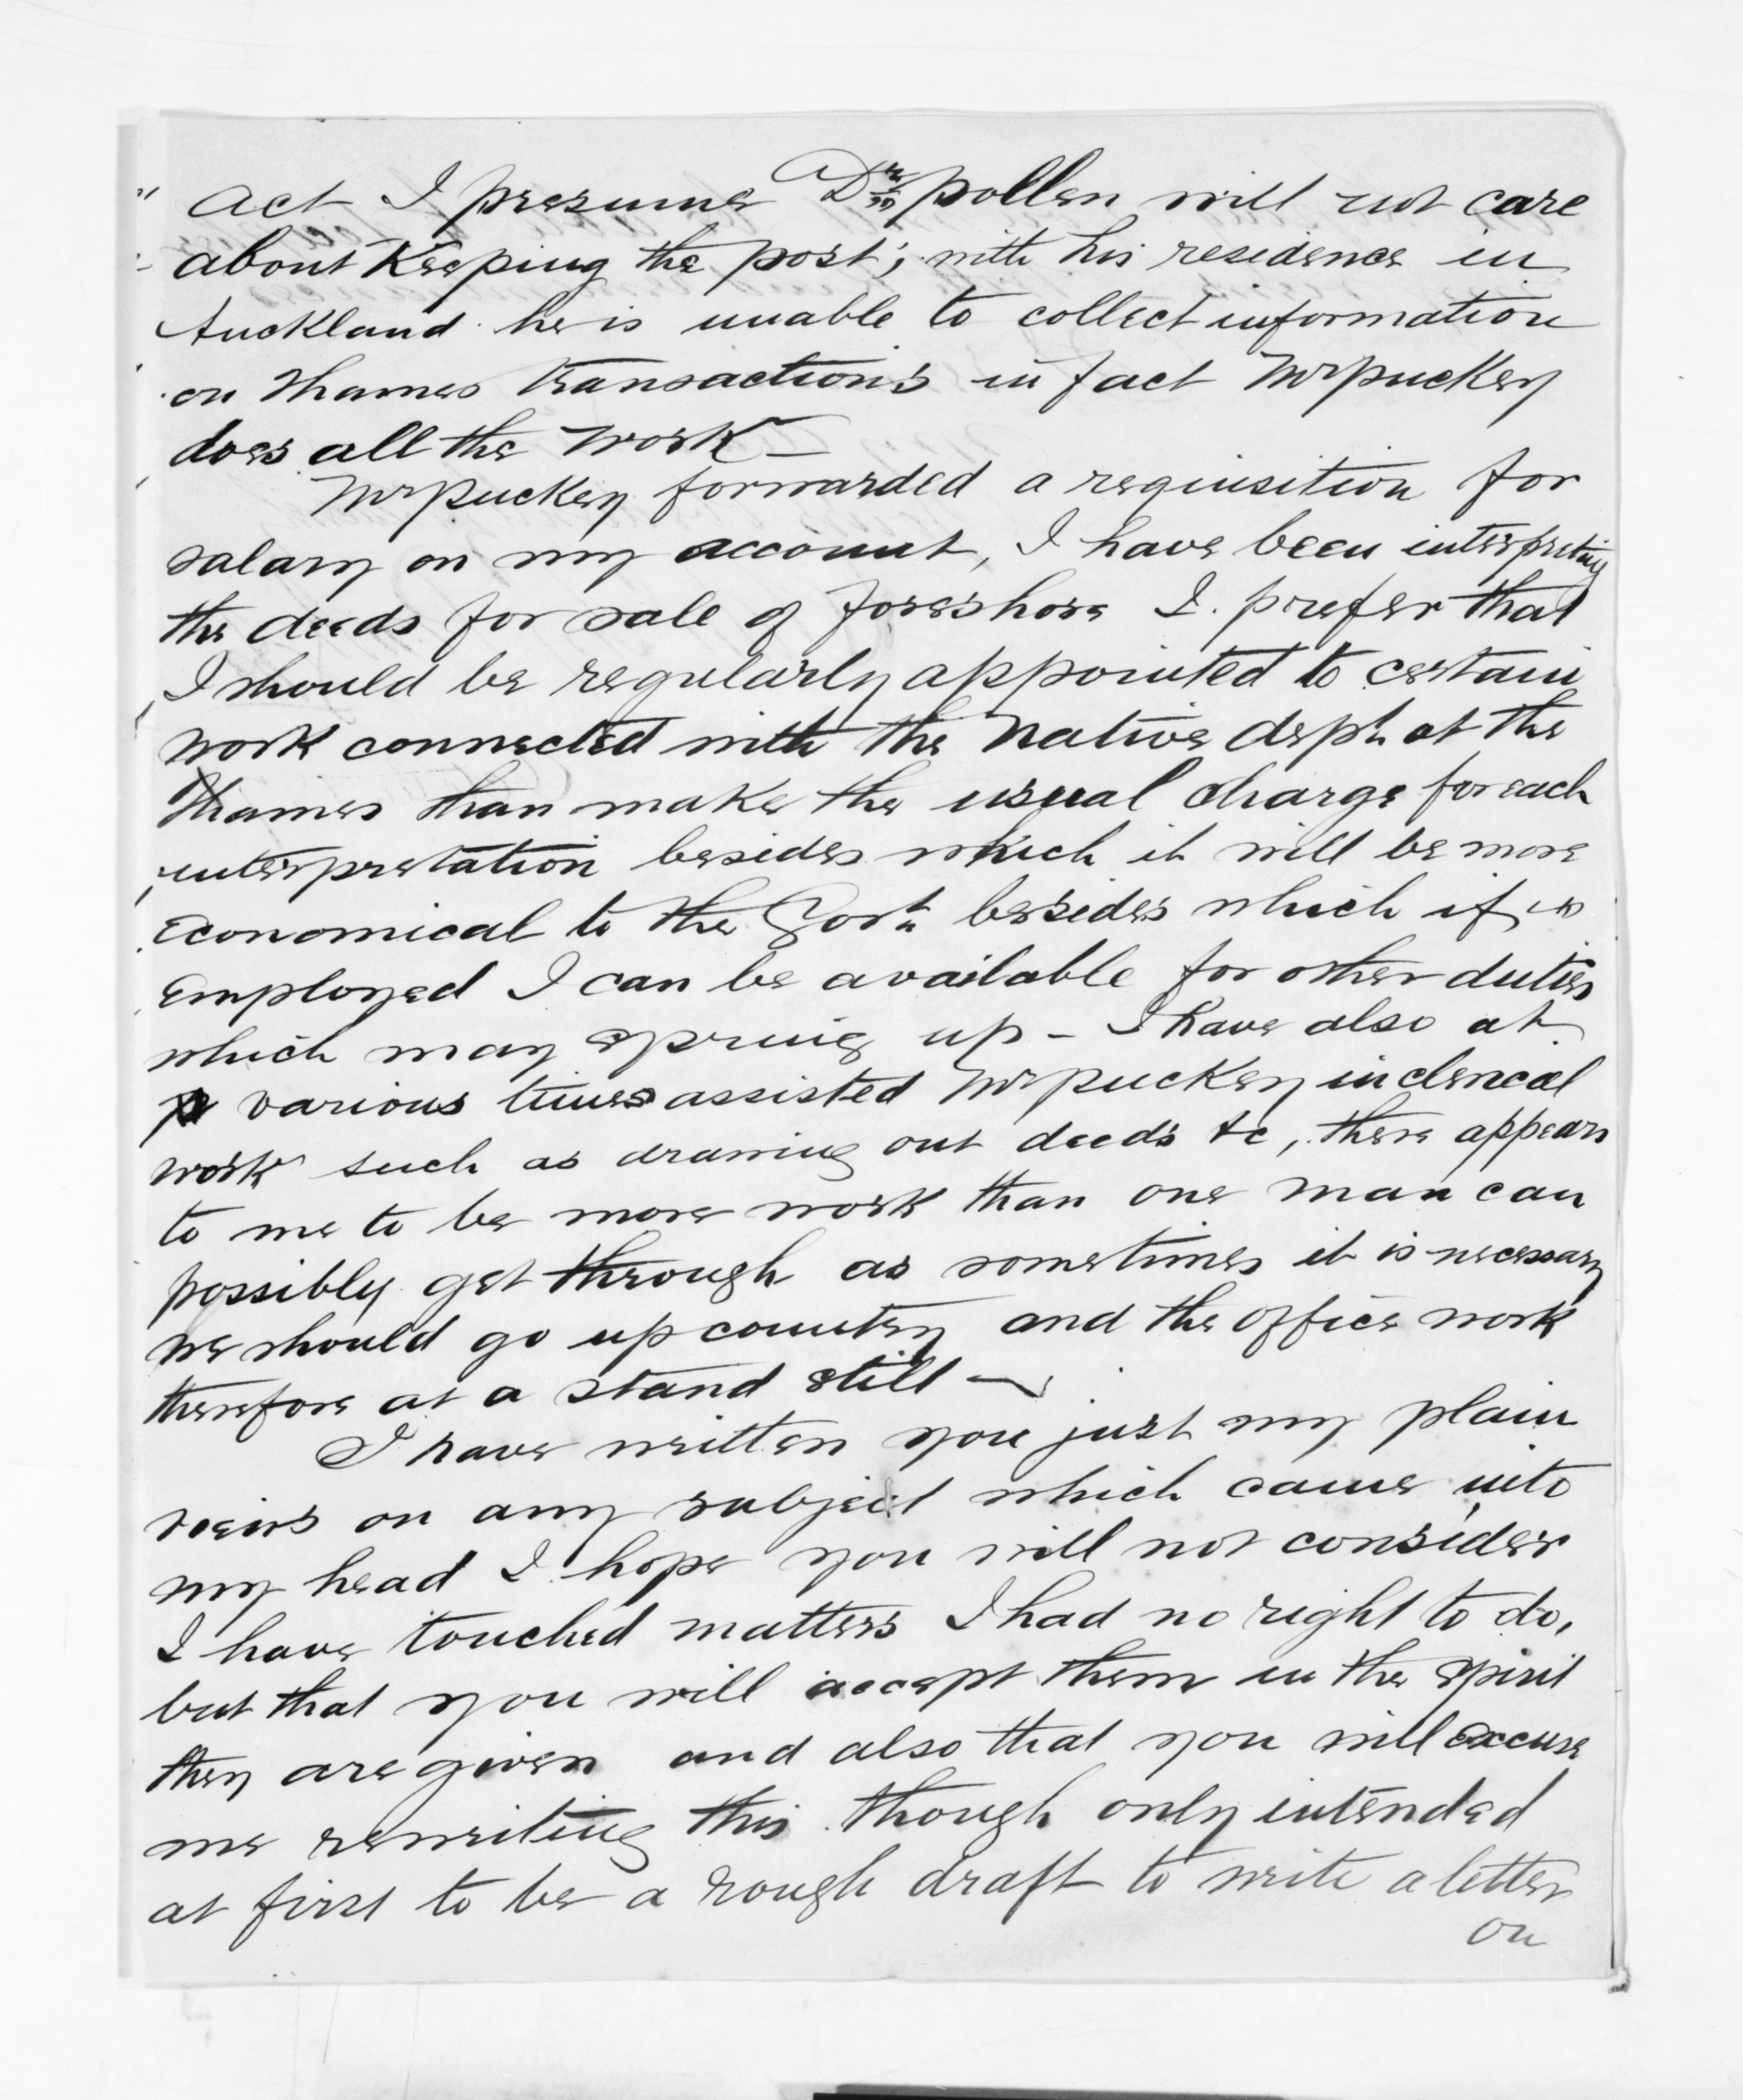 Act I presume Dr Pollen will not care
about Keeping the post; with his residence in
Auckland he is unable to collect information
on Thames transactions in fact Mr puckey
does all the work —
Mr puckey forwarded a requisition for
salary on my account, I have been interpreting
the deeds for sale of foreshore I prefer that
I should be regularly appointed to certain
work connected with the Native dept at the
Thames than make the usual charge for each
interpretation besides which it will be more
economical to the Govt besides which if
employed I can be available for other duties
which may spring up — I have also at
various times assisted Mr puckey in clerical
work such as drawing out deeds &c, there appears
to me to be more work than one man can
possibly get through as sometimes it is necessary
we should go up country and the office work
therefore at a stand still —
I have written you just my plain
veiws on any subject which came into
my head I hope you will not consider
I have touched matters I had no right to do,
but that you will accept them in the spirit
they are given and also that you will excuse
me rewriting this though only intended
at first to be a rough draft to write a letter
on